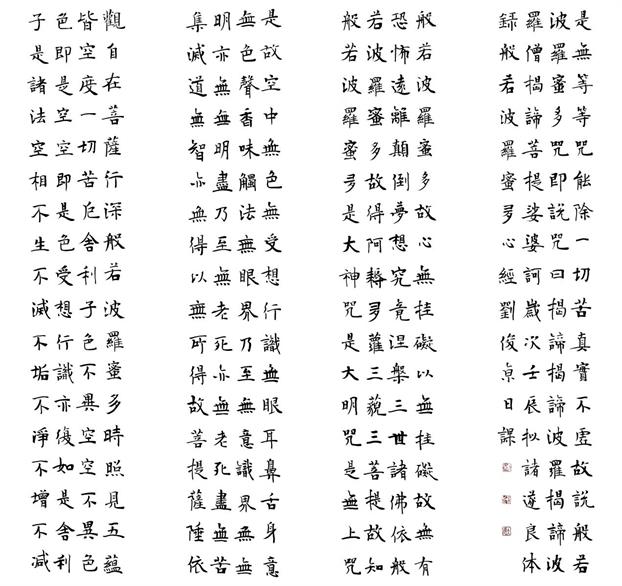 觀自在菩薩行深般若波羅蜜多時照見五蘊
皆空度一切苦厄舍利子色不異空空不異色
色即是空空即是色受想行識亦復如是舍利
子是諸法空相不生不滅不垢不淨不增不减
是故空中無色無受想行識無眼耳鼻舌身意
無色聲香味觸法無眼界乃至無意識界無無
明亦無無明盡乃至無老死亦無老死盡無苦
集滅道無智亦無得以無所得故菩提薩陲依
般若波羅蜜多故心無挂礙以無挂礙故無有
恐怖遠離顛倒夢想究竟涅槃三世諸佛依般
若波羅蜜多故得阿耨多蘿三藐三菩提故知
般若波羅蜜多是大神咒是大明咒是無上咒
是無等等咒能除一切苦真實不虛故說般若
波羅蜜多咒即說咒曰揭諦揭諦波羅揭諦波
羅僧揭諦菩提娑婆訶歲次壬辰拟諸遂良体
録般若波羅蜜多心經劉俊京日課